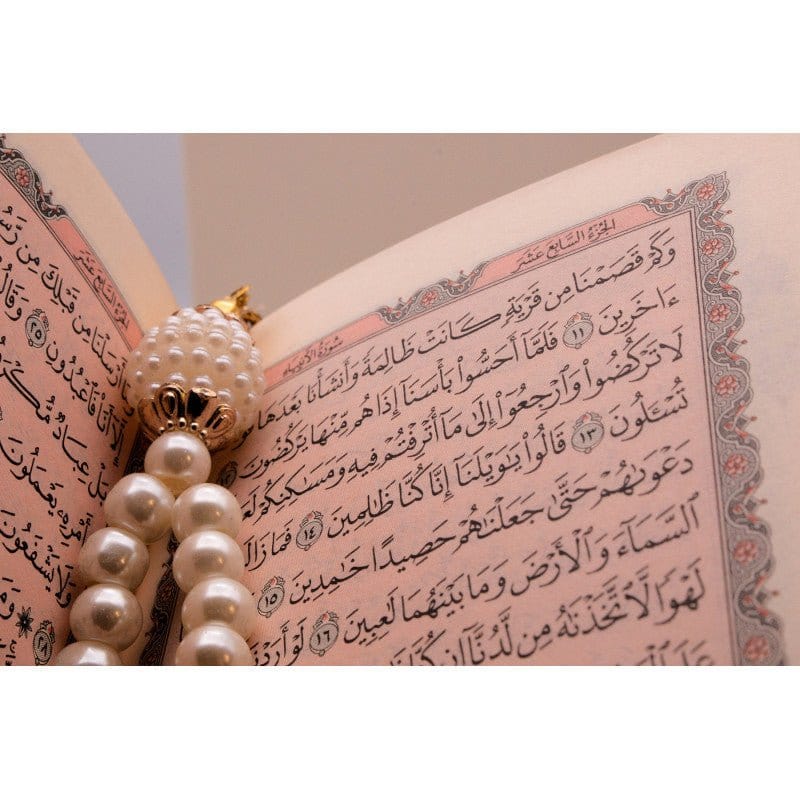 الجزء السابع عشر
سورة الأنبياء
وَكَمْ قَصَمْنَا مِن قَرْيَةٍ كَانَتْ ظَالِمَةً وَأَنشَأْنَا بَعْدَهَا
ءَاخَرِينَ ١١ فَلَمَّا أَحَسُّوا۟ بَأْسَنَا إِذَا هُم مِّنْهَا يَرْكُضُونَ
لَا تَرْكُضُوا۟ وَٱرْجِعُوٓا۟ إِلَىٰ مَا أُتْرِفْتُمْ فِيهِ وَمَسَٰكِنِكُمْ
تُسْـَٔلُونَ ١٣ قَالُوا۟ يَٰوَيْلَنَا إِنَّا كُنَّا ظَٰلِمِينَ ١٤ فَمَا زَالَت
دَعْوَىٰهُمْ حَتَّىٰ جَعَلْنَٰهُمْ حَصِيدًا خَٰمِدِينَ ١٥
ٱلسَّمَآءَ وَٱلْأَرْضَ وَمَا بَيْنَهُمَا لَٰعِبِينَ ١٦ لَوْ أَرَدْنَا
لَهْوًا لَّٱتَّخَذْنَٰهُ مِن لَّدُنَّآ إِن كُنَّا
الجزء السابع عشر
أَرْسَلْنَا مِن قَبْلِكَ مِن رَّسُولٍ
إِلَّآ أَنَا۠ فَٱعْبُدُونِ ٢٥ وَقَالُوا۟
بَلْ عِبَادٌ مُّكْرَمُونَ
بِأَمْرِهِۦ يَعْمَلُونَ
وَلَا يَشْفَعُونَ